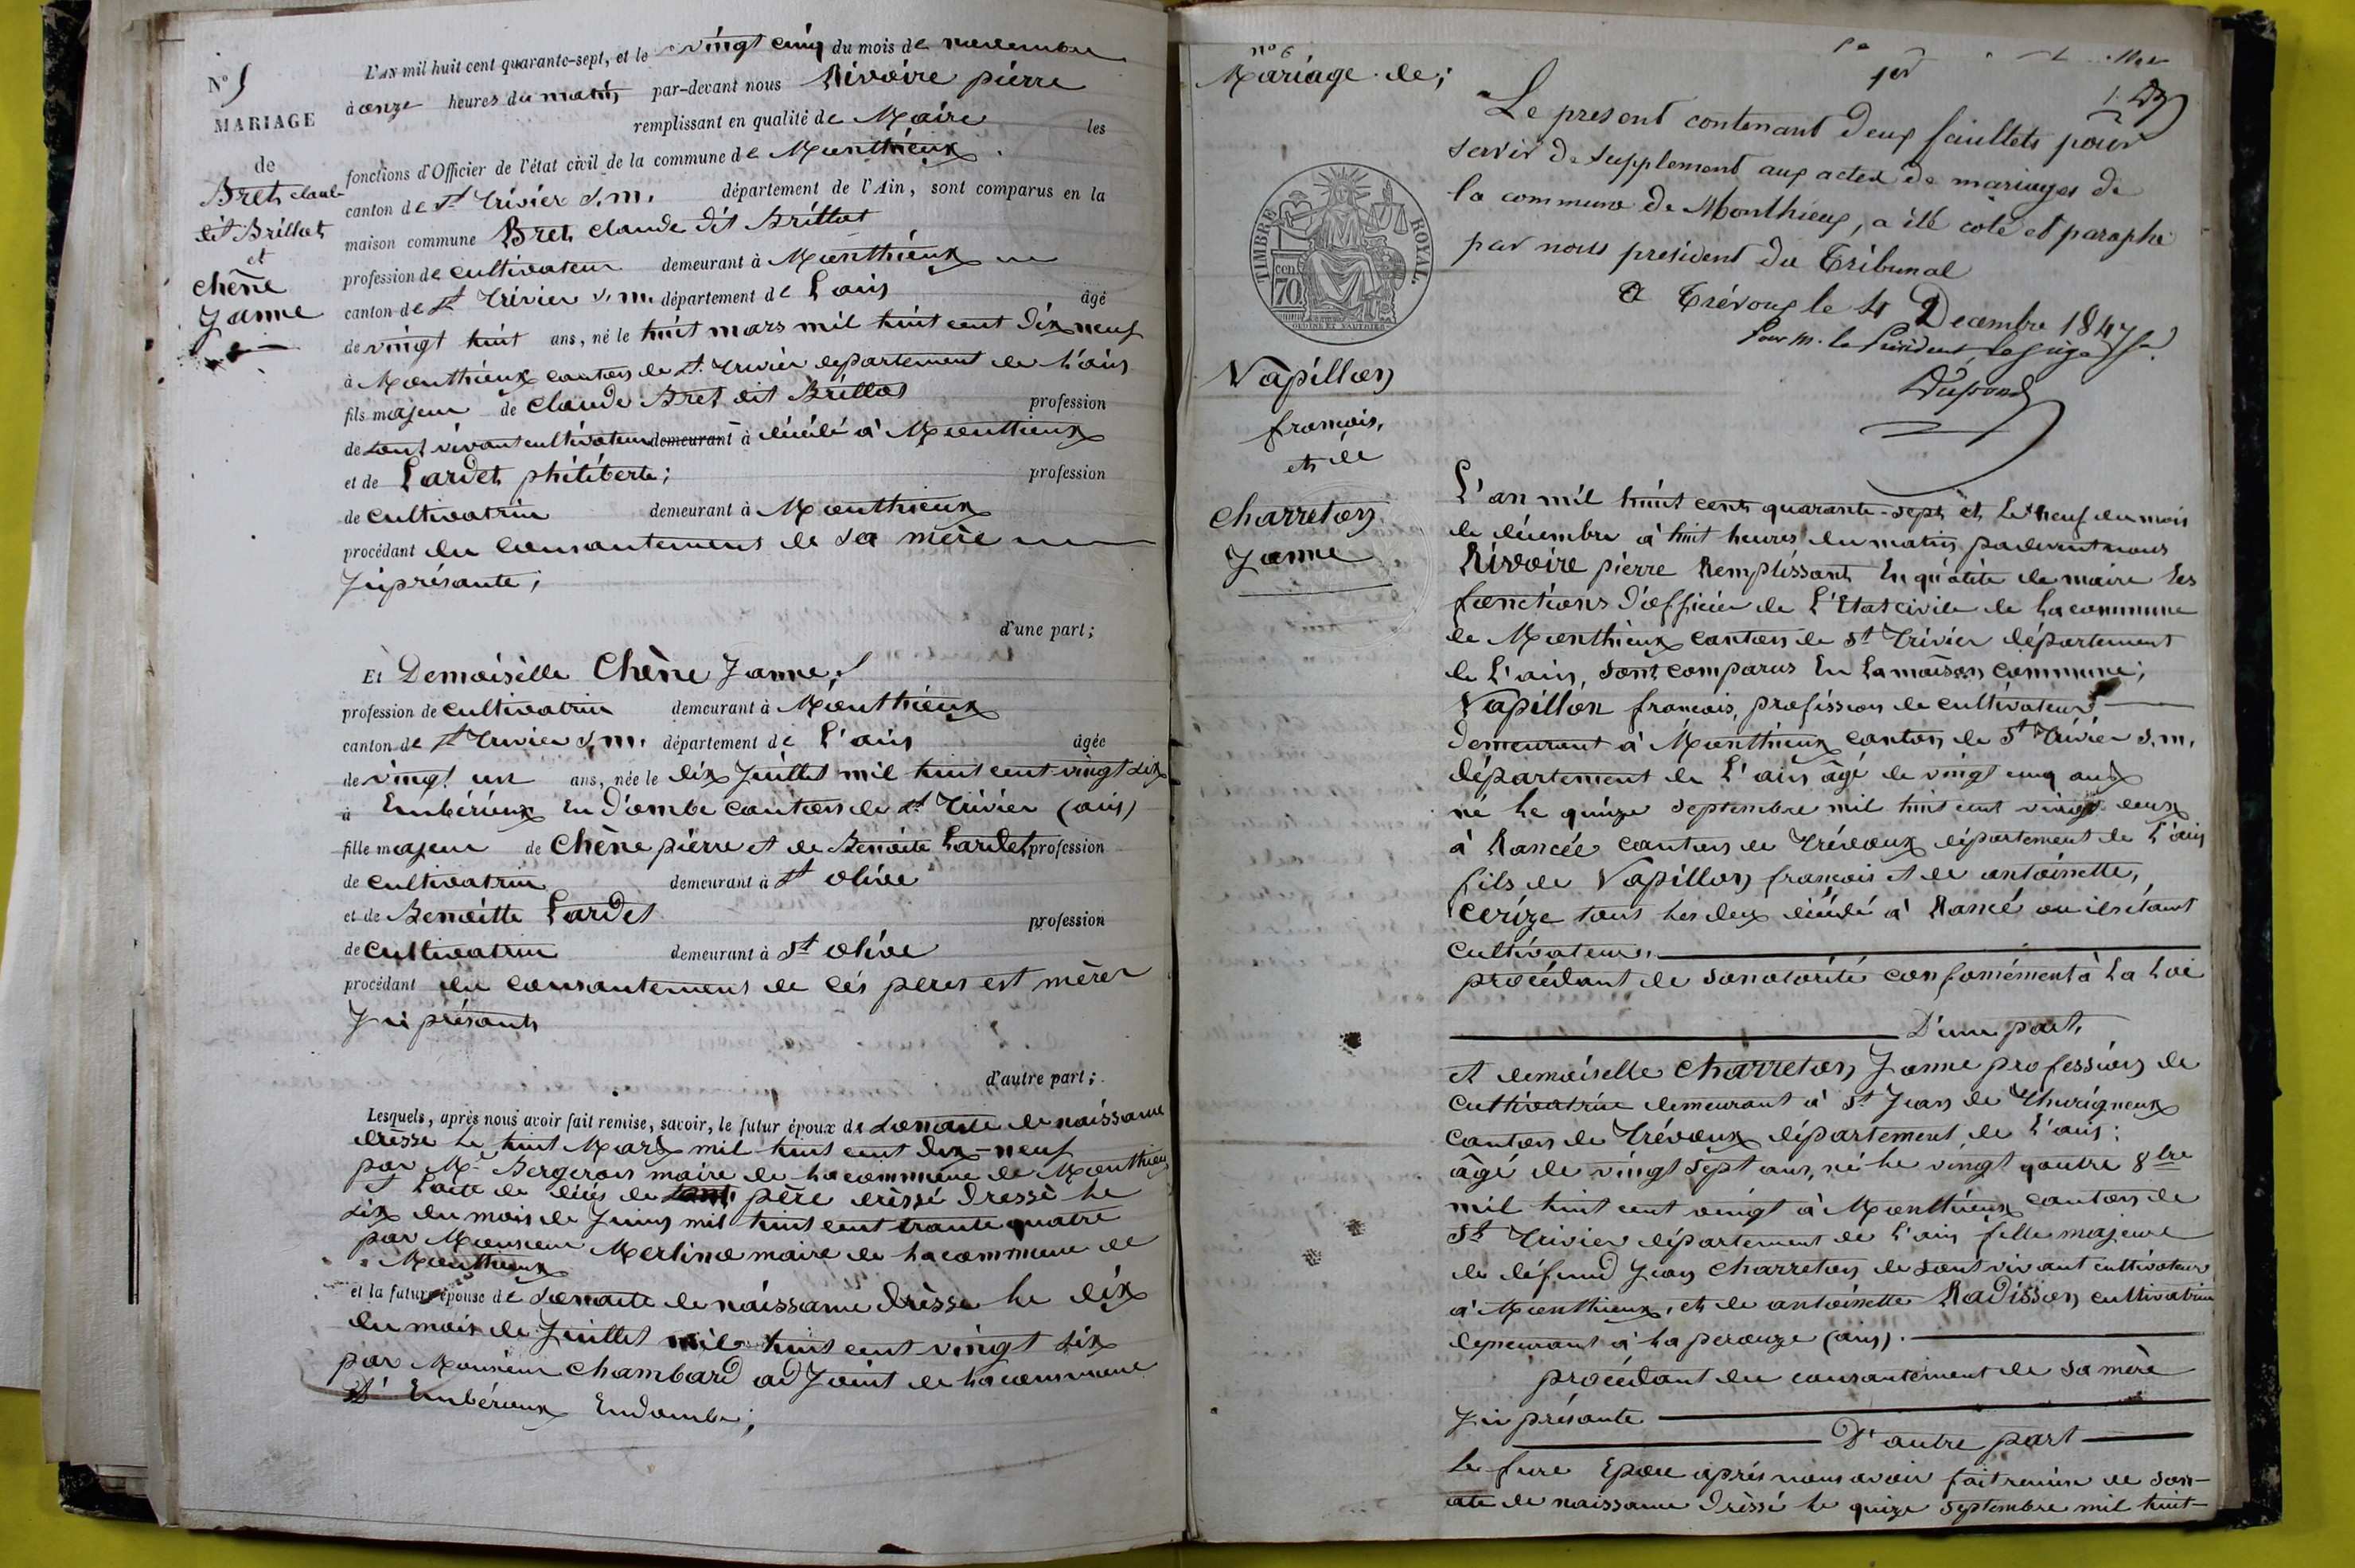 N° 5
MARIAGE
de
Bret claude
dit Brillat
et
chêne
Janne
L'AN mil huit cent quarante-sept, et le vingt cinq du mois de novembre
à onze heures du matin par-devant nous Rivoire pierre
remplissant en qualité de Maire les
fonctions d'Officier de l'état civil de la commune de Monthieux
canton de St Trivier s. m. département de l'Ain, sont comparus en la
maison commune Bret claude dit Brillat
profession de cultivateur demeurant à Monthieux
canton de St Trivier s. m. département de L'ain âgé
de vingt huit ans, né le huit mars mil huit cent dix neuf
à Monthieux canton de St Trivier departement de L'ain
fils majeur de claude Bret dit Brillat profession
de sont vivant cultivateur demeurant à décédé à Monthieux
et de Lardet philiberte; profession
de cultivatrice demeurant à Monthieux
procédant du consantement de sa mère
Jciprésante;
d'une part;
Et Demoiselle Chêne Janne,
profession de cultivatrice demeurant à Monthieux
canton de St Trivier s. m. département de L'ain âgée
de vingt un ans, née le dix Juillet mil huit cent vingt six
à Embérieux En d'ombe canton de St Trivier (ain)
fille majeur de Chêne pierre et de Benoite Lardet profession
de cultivatrice demeurant à St olive
et de Benoitte Lardet profession
de cultivatrice demeurant à St olive
procédant du consantement de cés peres est mère
Jci présants
d'autre part;
Lesquels, après nous avoir fait remise, savoir, le futur époux de sonacte de naissance
drèsse le huit Mars mil huit cent dix-neuf
par Mr Bergeron maire de la commune de Monthieux
et L'acte de décès de père drèssé dressé le
six du mois de Juin mil huit cent trante quatre
par Monsieur Merlino maire de la commune de
Monthieux
et la future épouse de sonacte de naissance drèsse le dix
du mois de Juillet mil huit cent vingt six
par Monsieur Chambard adJoint de la commune
D'Embérieux Endombe;
n° 6
Mariage de;
Vapillon
francois,
et de
Charreton
Janne
TIMBRE ROYAL
70 cen
1er
Le present contenant deux feuillets pour
servir de supplement aux actes de mariages de
la commune de Monthieux, a été coté et paraphé
par nous president du Tribunal
a Trévoux le 4 Decembre 1847
Pour M. le Président, le Juge
Dupond
L'an mil huit cent quarante-sept et Le neuf du mois
de décembre à huit heures du matin padevant nous
Rivoire pierre Remplissant En qualité de maire Les
fonctions d'officier de L'Etat civile de La commune
de Monthieux canton de St Trivier département
de L'ain, sont comparus En La maison commune;
Vapillon francois, profission de cultivateur
demeurant à Monthieux canton de St Trivier s. m.
département de L'ain âgé de vingt cinq ans
né Le quinze septembre mil huit cent vingt deux
à Rancée canton de Trévoux département de L'ain
fils de Vapillon francois et de antoinette,
Cerize tous Les deux décédé à Rancé ou ils étant
cultivateur.
procédant de sonotorité conformément à La Loi
D'une part,
et demoiselle Charreton Janne profession de
cultivatrice demeurant à St Jean de Thurigneux
canton de Trévoux département de L'ain;
âgé de vingt sept ans, né Le vingt quatre 8bre
mil huit cent vingt à Monthieux canton de
St Trivier département de L'ain fille majeure
de défund Jean Charreton de sont vivant cultivateur
à Monthieux, et de antoinette Radisson cultivatrice
demeurant à La perouze (ain).
procédant du consantement de sa mère
Jci présante
D'autre part
Le fure Epou après nous avoir fait remise de son
acte de naissance drèssé le quize septembre mil huit